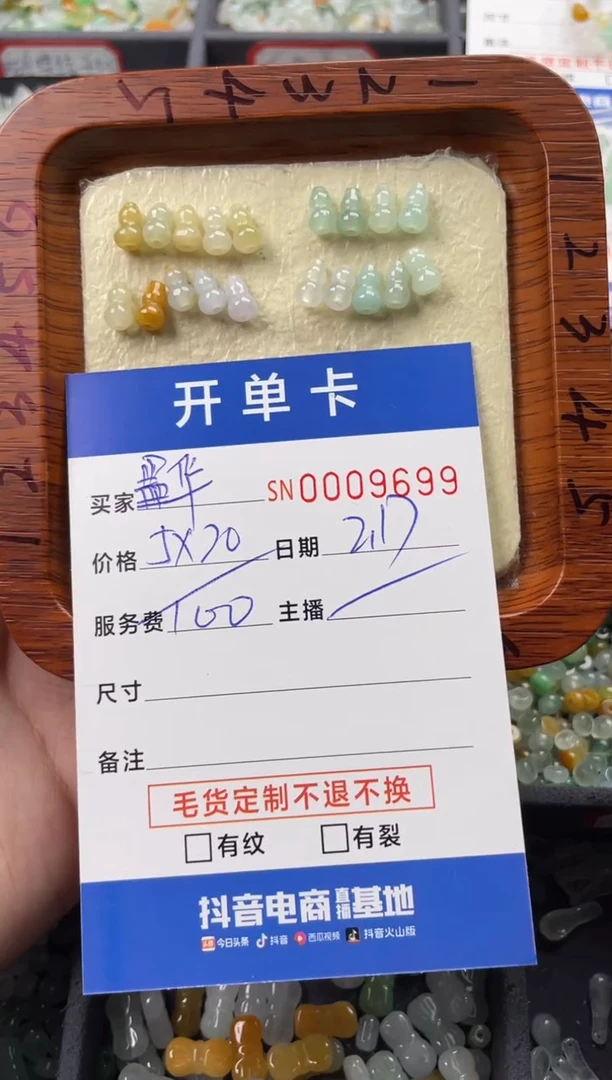 1 2 3 4 5
1 2 3 4 5
开单卡
买家 华 SN0009699
价格 5X20 日期 2.17
服务费 100 主播
尺寸
备注
毛货定制不退不换
有纹 有裂
抖音电商直播基地
头条 今日头条 抖音 西瓜视频 抖音火山版